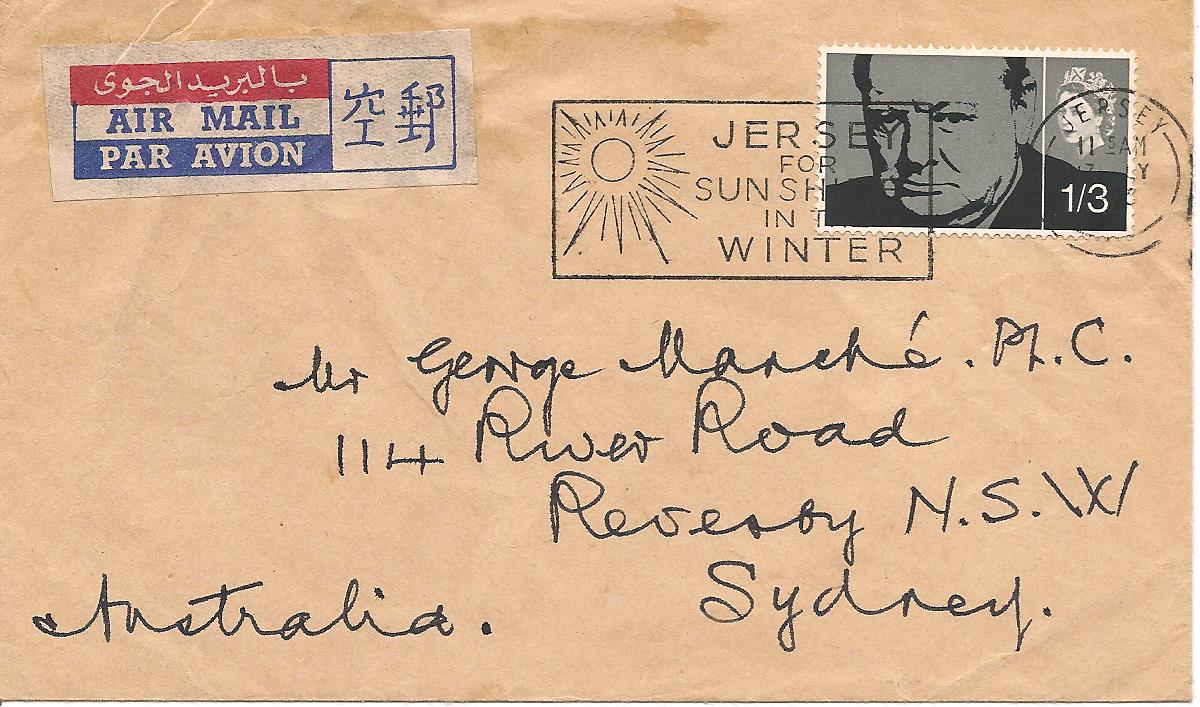 بالبريد الجوى
AIR MAIL
PAR AVION
空郵
JERSEY
FOR
SUNSH
IN T
WINTER
1/3
JERSEY
Mr George Marché. Ph.C.
114 River Road
Revesby N.S.W
Sydney.
Australia.